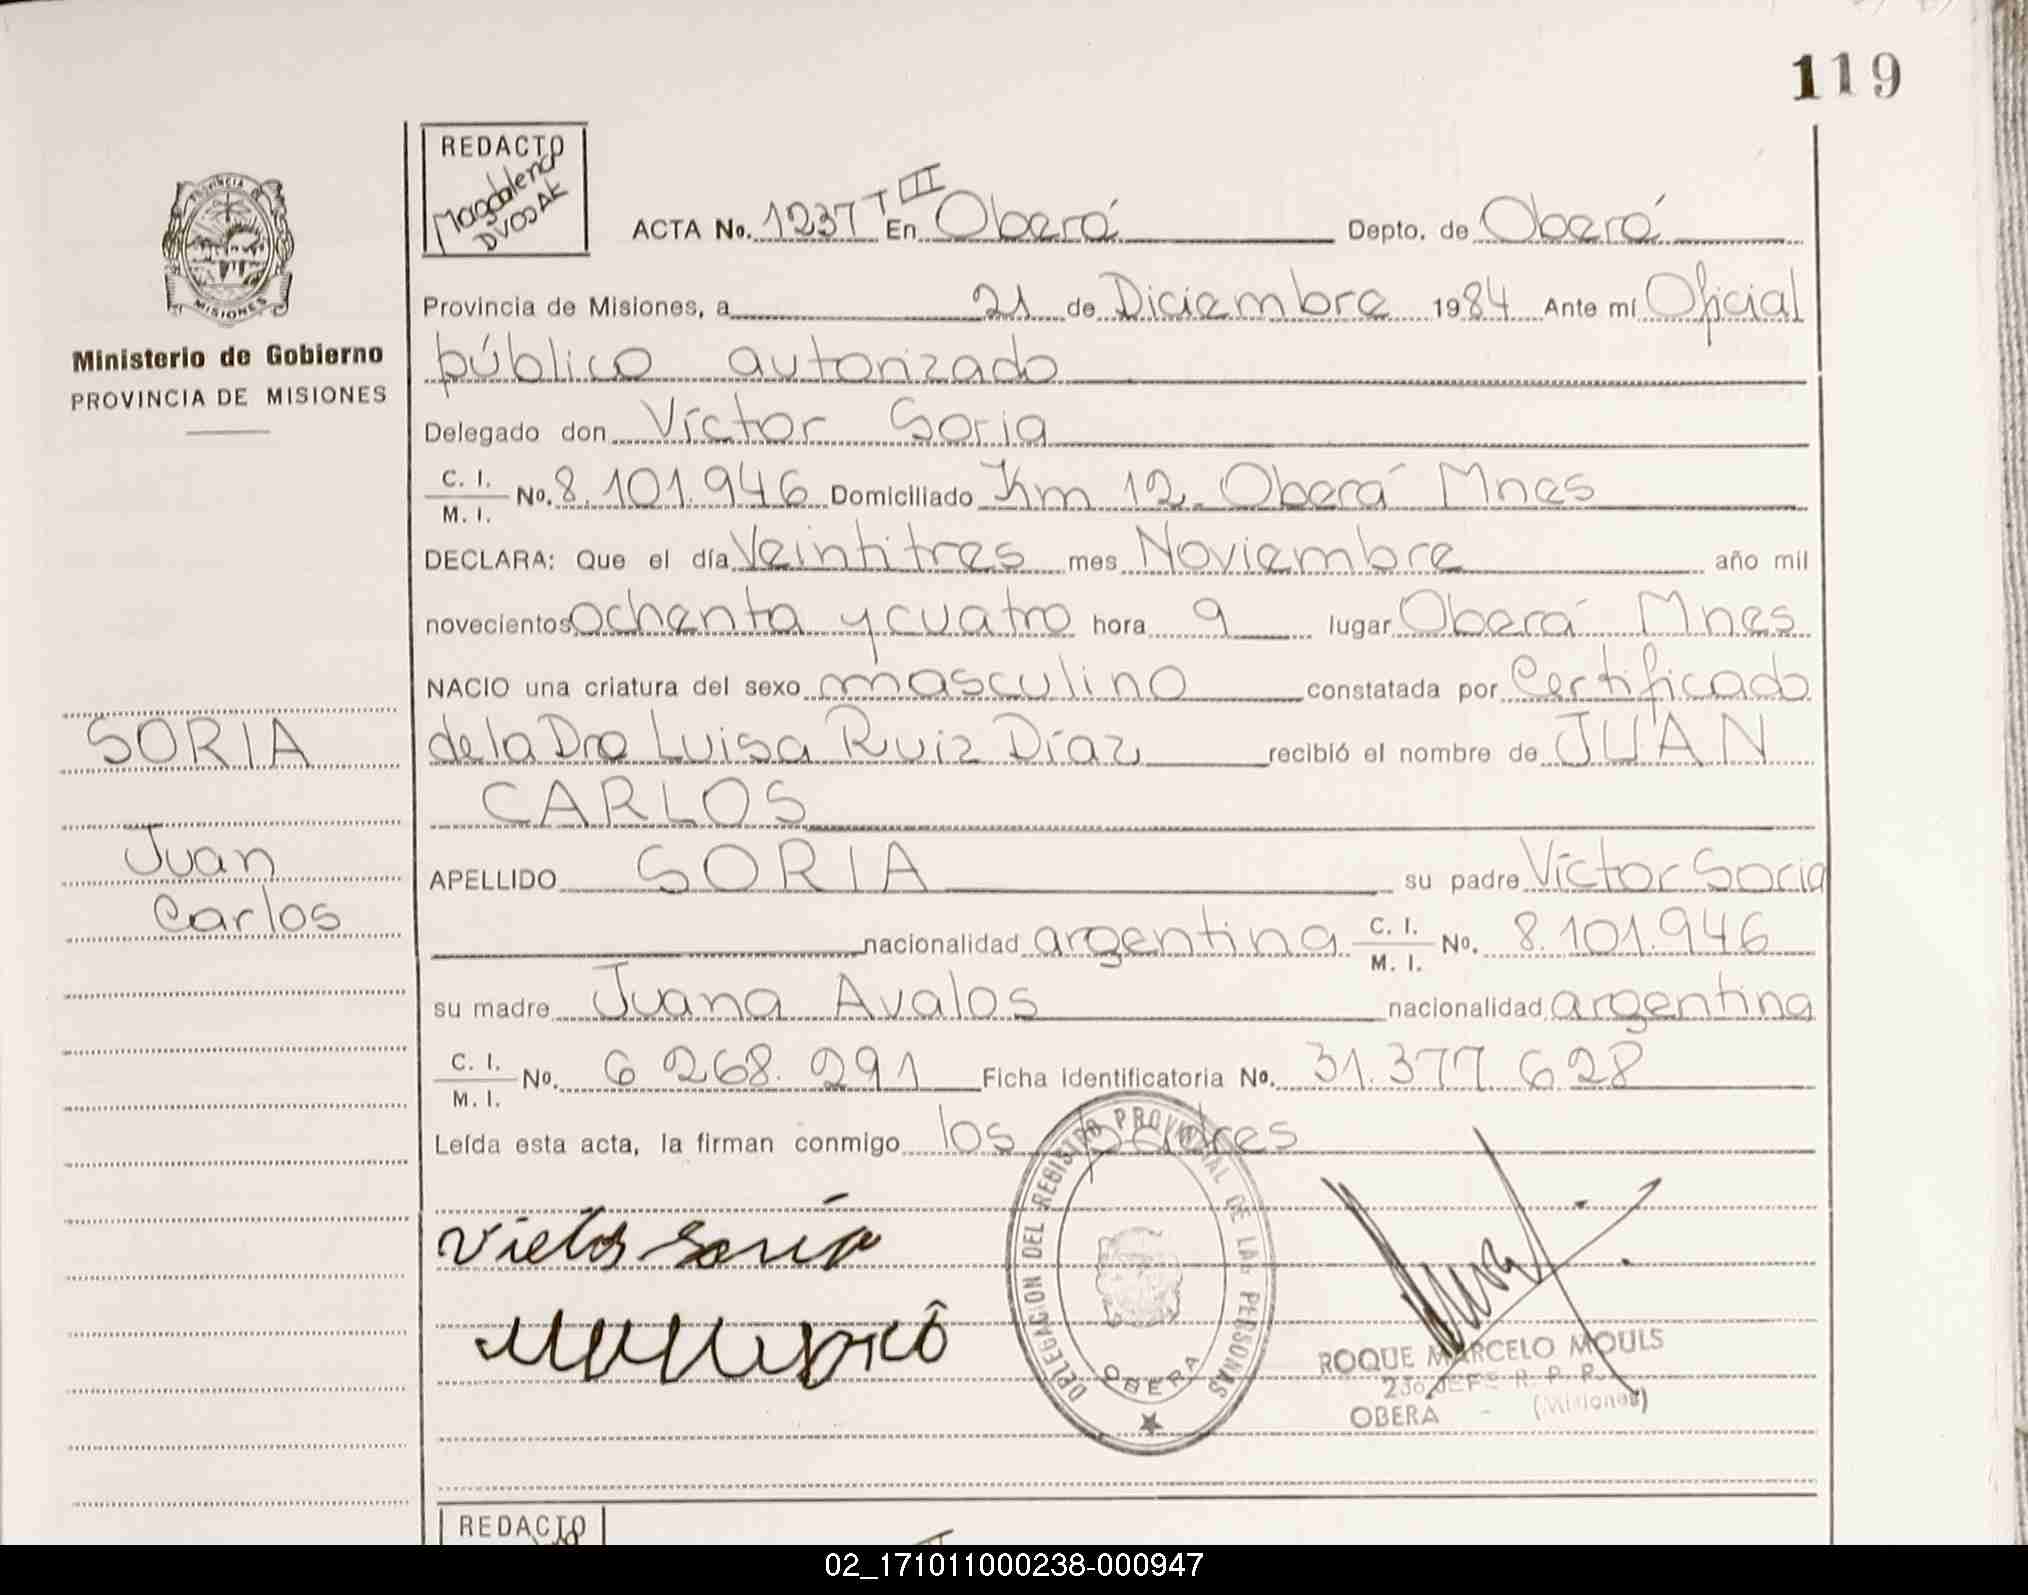 119
REDACTO
Magdalena
DVOJAK
ACTA No. 1237 T III En Oberá Depto. de Oberá
PROVINCIA DE
MISIONES
Provincia de Misiones, a 21 de Diciembre 1984 Ante mí Oficial
Ministerio de Gobierno
público autorizado
PROVINCIA DE MISIONES
Delegado don Víctor Soria
C. I. M. I. No. 8.101.946 Domiciliado Km 12 - Oberá Mnes
DECLARA: Que el día Veintitres mes Noviembre año mil
novecientos ochenta y cuatro hora 9 lugar Oberá Mnes
NACIO una criatura del sexo masculino constatada por Certificado
SORIA
de la Dra Luisa Ruiz Díaz recibió el nombre de JUAN
CARLOS
Juan
APELLIDO SORIA su padre Víctor Soria
Carlos
nacionalidad argentina C. I. M. I. No. 8.101.946
su madre Juana Avalos nacionalidad argentina
C. I. M. I. No. 6 268. 291 Ficha Identificatoria No. 31.377 628
Leída esta acta, la firman conmigo los padres
DELEGACION DEL REGISTRO PROVINCIAL DE LAS PERSONAS
OBERA
Victor Soria
ROQUE MARCELO MOULS
2do JEFE R. P. P.
OBERA - (Misiones)
REDACTO
02_171011000238-000947